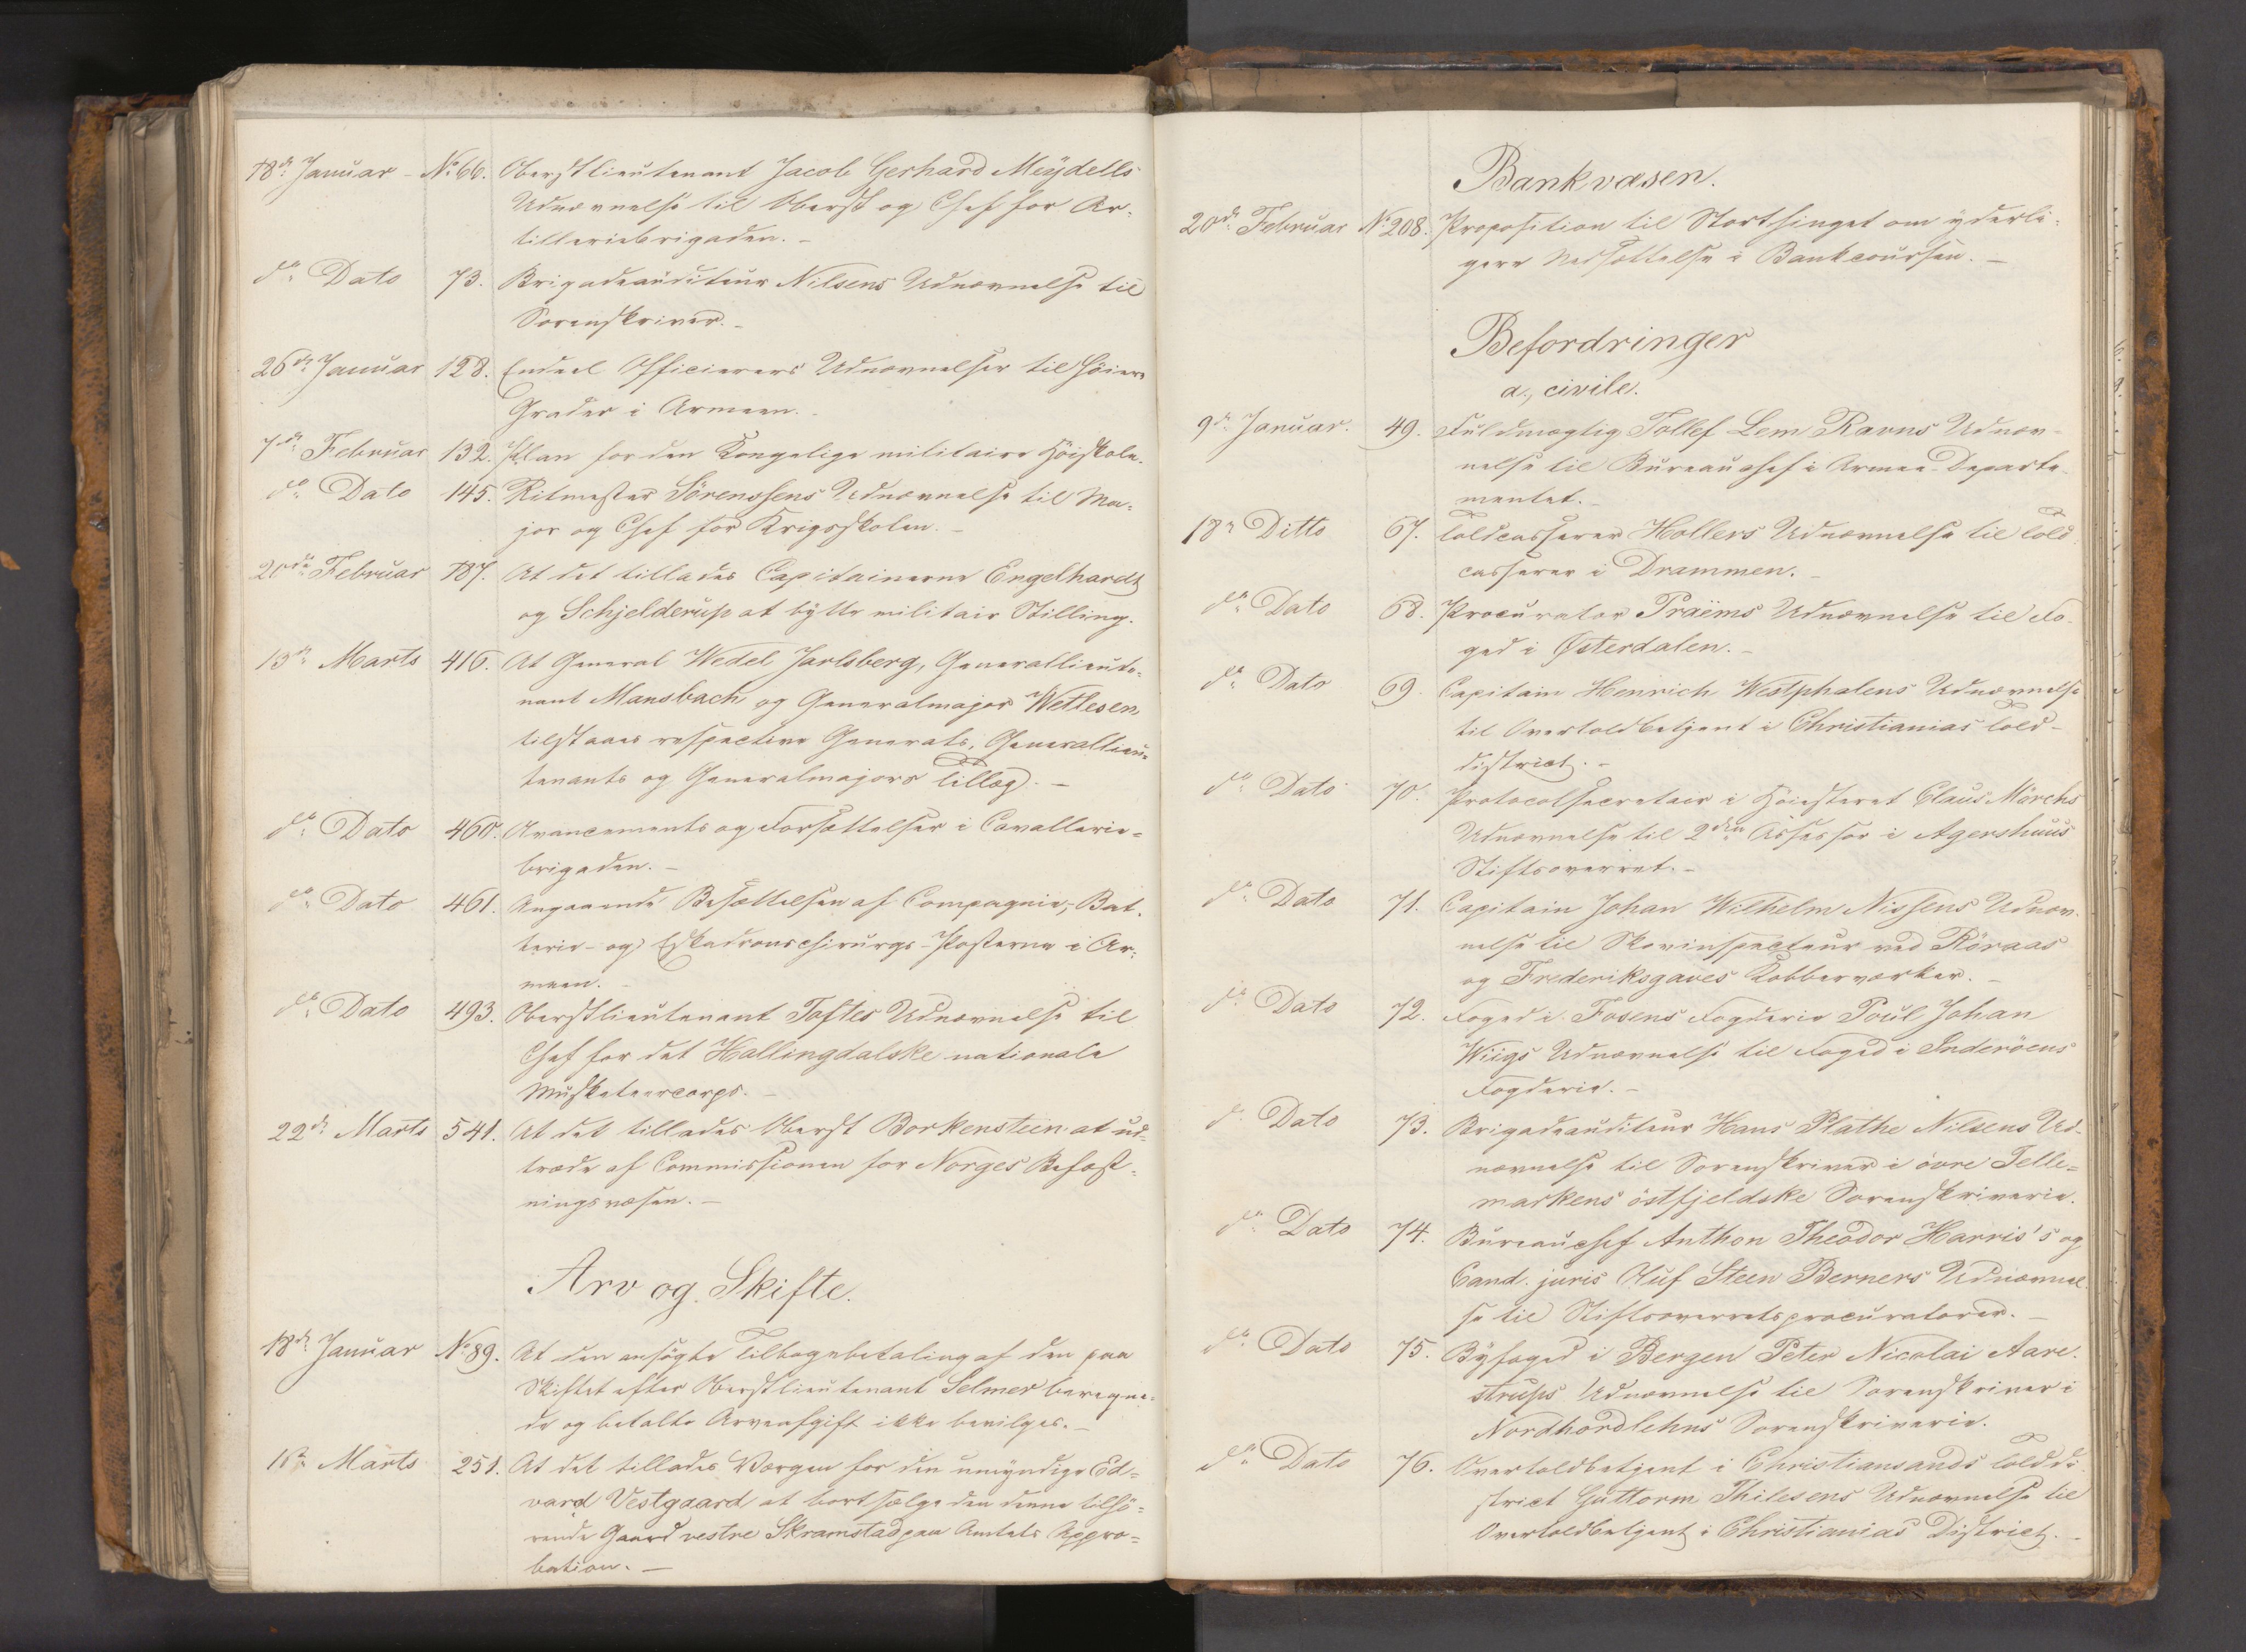 18de Januar - No 66. Oberstlieutenant Jacob Gerhard Meydells
Udnævnelse til Oberst og Chef for Ar-
tilleriebrigaden. -
do Dato 73. Brigadeauditeur Nilsens Udnævnelse til
Sorenskriver. -
26de Januar 128. Endeel Officierers Udnævnelser til høiere
Grader i Armeen. -
7de Februar 132. Plan for den Kongelige militaire Höiskole.
do Dato 145. Ritmester Sörenssens Udnævnelse til Ma-
jor og Chef for Krigsskolen. -
20de Februar 187. At det tillades Capitainerne Engelhardt
og Schjelderup at bytte militair Stilling.
13de Marts 416. At General Wedel Jarlsberg, Generallieute-
nant Mansbach og Generalmajor Wetlesen
tilstaaes respective Generals, Generallieu-
tenants og Generalmajors Tillæg. -
do Dato 460. Avancements og Forsættelser i Cavallerie-
brigaden. -
do Dato 461. Angaaende Besættelsen af Compagnie-, Bat-
terie- og Eskadronschirurgs-Posterne i Ar-
meen. -
do Dato 493. Oberstlieutenant Toftes Udnævnelse til
Chef for det Hallingdalske nationale
Musketeercorps. -
22de Marts 541. At det tillades Oberst Borkenstein at ud-
træde af Commissionen for Norges Befæst-
ningsvæsen. -
Arv og Skifte.
18de Januar No 89. At den ansögte Tilbagebetaling af den paa
Skiftet efter Oberstlieutenant Selmer beregne-
de og betalte Arveafgift ikke bevilges. -
1ste Marts 251. At det tillades Værgen for den umyndige Ed-
vard Vestgaard at bortsælge den denne tilhö-
rende Gaard vestre Skramstad paa Amtets Appro-
bation. -
Bankvæsen.
20de Februar No 208. Proposition til Storthinget om yderli-
gere Nedsættelse i Bankcoursen. -
Befordringer
a., civile.
9de Januar. 49. Fuldmægtig Tollef Lem Ravns Udnæv-
nelse til Bureauchef i Armee-Departe-
mentet. -
18de Ditto 67. Toldcasserer Hollers Udnævnelse til Told-
casserer i Drammen. -
do Dato 68. Procurator Præms Udnævnelse til Fo-
ged i Østerdalen. -
do Dato 69. Capitain Henrich Westphalens Udnævnelse
til Overtoldbetjent i Christianias Told-
district. -
do Dato 70. Protocolsecretair i Höiesteret Claus Mörchs
Udnævnelse til 2den Assessor i Agershuus
Stiftsoverret. -
do Dato 71. Capitain Johan Wilhelm Nissens Udnæv-
nelse til Skovinspecteur ved Röraas
og Frederiksgaves Kobberværker. -
do Dato 72. Foged i Fosens Fogderie Poul Johan
Wiigs Udnævnelse til Foged i Inderöens
Fogderie. -
do Dato 73. Brigadeauditeur Hans Plathe Nilsens Ud-
nævnelse til Sorenskriver i övre Telle-
markens östfjeldske Sorenskriverie.
do Dato 74. Bureauchef Anthon Theodor Harris's og
Cand. juris Oluf Steen Berners Udnævnel-
se til Stiftsoverretsprocuratorer. -
do Dato 75. Byfoged i Bergen Peter Nicolai Aare-
strups Udnævnelse til Sorenskriver i
Nordhordlehns Sorenskriverie.
do Dato 76. Overtoldbetjent i Christiansands Tolddi-
strict Guttorm Thilesens Udnævnelse til
Overtoldbetjent i Christianias District. -